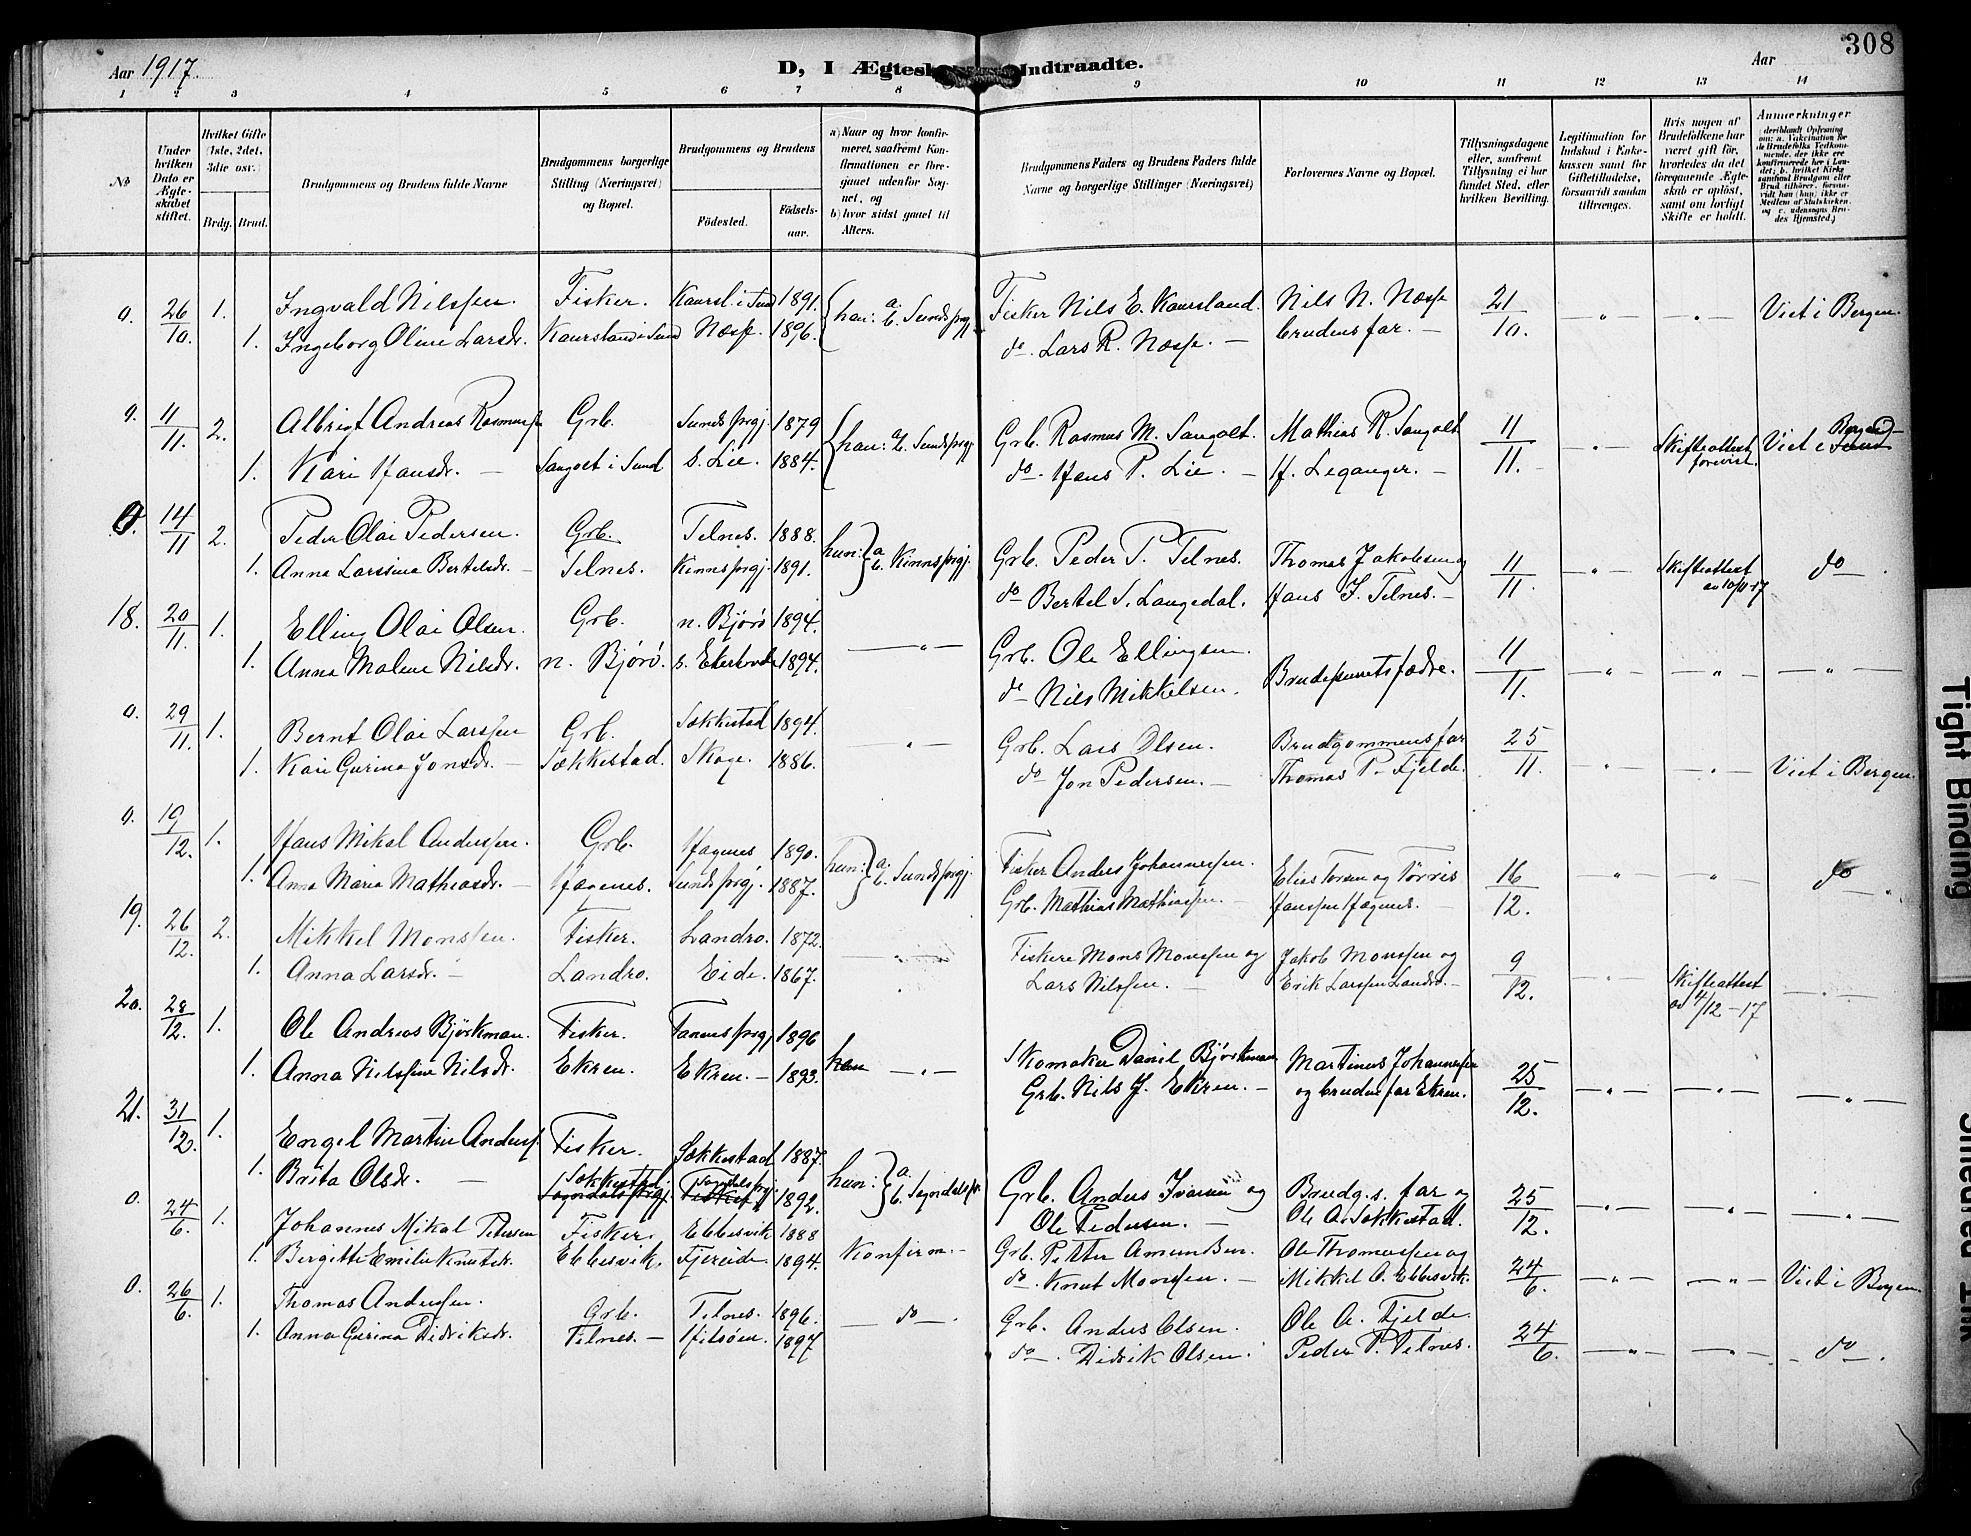 308
Aar 1917. D, I Ægtesk Indtraadte. Aar
1 2 3 4 5 6 7 8 9 10 11 12 13 14
No
Under hvilken Dato er Ægteskabet stiftet.
Hvilket Gifte (1ste, 2det, 3die osv.)
Brdg. Brud.
Brudgommens og Brudens fulde Navne
Brudgommens borgerlige Stilling (Næringsvei) og Bopæl.
Brudgommens og Brudens
Fødested. Fødselsaar.
a) Naar og hvor konfirmeret, saafremt Konfirmationen er foregaaet udenfor Sognet, og
b) hvor sidst gaaet til Alters.
Brudgommens Faders og Brudens Faders fulde Navne og borgerlige Stillinger (Næringsvei)
Forlovernes Navne og Bopæl.
Tillysningsdagene eller, saafremt Tillysning ei har fundet Sted, efter hvilken Bevilling.
Legitimation for Indskud i Enkekassen samt for Giftetilladelse, forsaavidt saadan tiltrænges.
Hvis nogen af Brudefolkene har været gift før, hvorledes da det foregaaende Ægteskab er opløst, samt om lovligt Skifte er holdt.
Anmærkninger (deriblandt Oplysning om: a. Vaccination for de Brudefolks Vedkommende, der ikke ere konfirmerede her i Landet; b. hvilket Kirkesamfund Brudgom eller Brud tilhører, forsaavidt han (hun) ikke er Medlem af Statskirken, og c. udensogns Brudes Hjemsted.)
0. 26/10 1. Ingvald Nilssen. Fisker. Kaursl. i Sund 1891. han: a. b. Sundsprgj. Fisker Nils E. Kaursland. Nils N. Næsse 21/10. — " — — " — Viet i Bergen.
1. Ingeborg Oline Larsdr. Kaursland i Sund Næsse. 1896. do. Lars R. Næsse. — brudens far. —
0. 11/11. 2. Albrigt Andreas Rasmussen Grb. Sundsprgj. 1879 han: a b. Sundsprgj. Grb. Rasmus M. Sangolt. Mathias R. Sangolt 11/11. — " — Skifteattest forevist. Viet i Sund Bergen
1. Kari Hansdr. — Sangolt i Sund s. Lie. 1884. do. Hans P. Lie. — H. Leganger. —
0. 14/11 2. Peder Olai Pedersen. Grb. Telnes. 1888. hun: a b. Kinnsprgj. Grb. Peder P. Telnes. Thomas Jakobsen og 11/11. — " — Skifteattest av 10/11-17 do —
1. Anna Larssina Bertelsdr. — Telnes. Kinnsprgj. 1891. do Bertel S. Langedal. Hans J. Telnes. —
18. 20/11. 1. Elling Olai Olsen. Grb. n. Bjørø 1894. — " — Grb. Ole Ellingsen. Brudeparrets fædre. 11/11. — " — — " — — " —
1. Anna Malene Nilsdr. n. Bjørø. s. Ekerhovde 1894. do Nils Mikkelsen.
0. 29/11. 1. Bernt Olai Larssen Grb. Søkkestad 1894. — " — Grb. Lars Olsen. Brudgommens far 25/11. — " — — " — Viet i Bergen.
1. Kari Gurina Jonsdr. — Søkkestad. Skoge. 1886. do Jon Pedersen. — Thomas P. Fjelde.
0. 19/12. 1. Hans Mikal Anderssen. Grb. Hagenes 1890. hun: a. b. Sundsprgj. Fisker Anders Johannessen. Elias Torsen og Tørris 16/12. — " — — " — do —
1. Anna Maria Mathiasdr. — Hagenes. Sundsprgj. 1887. Grb. Mathias Mathiassen. — Hanssen Hagenes. —
19. 26/12. 2. Mikkel Monssen. Fisker. Landro. 1872. — " — Fiskere Mons Monssen og Jakob Monssen og 9/12. — " — Skifteattest av 4/12-17 — " —
1. Anna Larsdr. — Landro. Eide. 1867. Lars Nilssen. — Erik Larssen Landro. —
20. 28/12. 1. Ole Andreas Bjørkman. Fisker. Fanneprgj. 1896 han — " — Skomaker Daniel Bjørkman Martinus Johannessen 25/12. — " — — " — — " —
1. Anna Nilssine Nilsdr. Ekren. Ekren. — 1893. Grb. Nils J. Ekren. — og brudens far Ekren.
21. 31/12. 1. Engel Martin Anderss. Fisker. Søkkestad 1887. hun: a. b. Sogndalspr. Grb. Anders Ivarsen og Brudg.s. far og 25/12. — " — — " — — " —
1. Brita Olsdr. — Søkkestad. Sogndalsprgj. 1892. Ole Pedersen. — Ole A. Søkkestad.
0. 24/6. 1. Johannes Mikal Petersen Fisker. Ebbesvik 1888 Konfirm. — Grb. Petter Amundsen. Ole Thomassen og 24/6. — " — — " — Viet i Bergen.
1. Bergitte Emilie Knutsdr. Ebbesvik. Fjereide. 1894. do. Knut Monssen. — Mikkel O. Ebbesvik.
0. 26/6. 1. Thomas Anderssen. Grb. Telnes. 1896. — do —. Grb. Anders Olsen. Ole A. Fjelde. 24/6. — " — — " — — do —.
1. Anna Gurina Didriksdr. Telnes. — Hilsøen. 1897 do —. Didrik Olsen. Peder P. Telnes.
Tight Binding
Smeared Ink